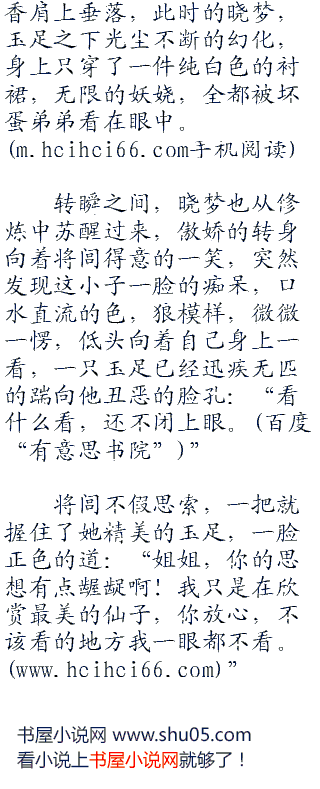 香肩上垂落，此时的晓梦，
玉足之下光尘不断的幻化，
身上只穿了一件纯白色的衬
裙，无限的妖娆，全都被坏
蛋弟弟看在眼中。
(m.hcihci66.com手机阅读)
转瞬之间，晓梦也从修
炼中苏醒过来，傲娇的转身
向着将闾得意的一笑，突然
发现这小子一脸的痴呆，口
水直流的色，狼模样，微微
一愣，低头向着自己身上一
看，一只玉足已经迅疾无匹
的踹向他丑恶的脸孔：“看
什么看，还不闭上眼。(百度
“有意思书院”)”
将闾不假思索，一把就
握住了她精美的玉足，一脸
正色的道：“姐姐，你的思
想有点龌龊啊！我只是在欣
赏最美的仙子，你放心，不
该看的地方我一眼都不看。
(www.hcihci66.com)”
书屋小说网 www.shu05.com
看小说上书屋小说网就够了！